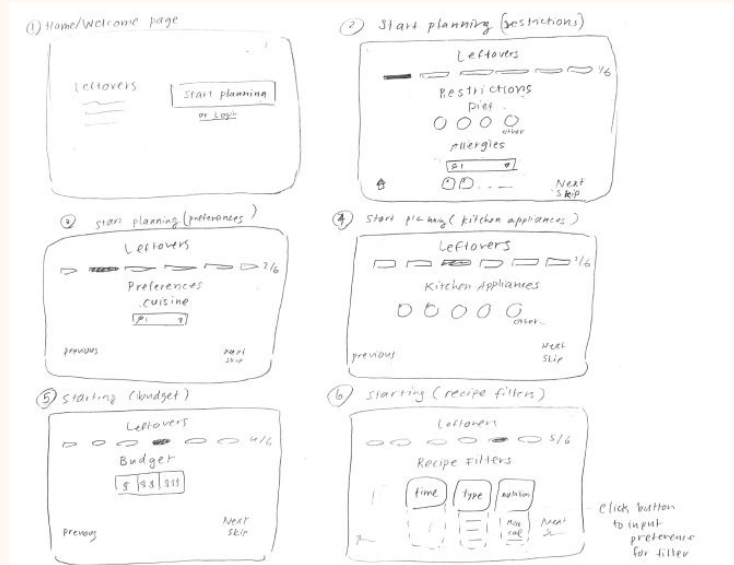 ① Home/Welcome page
Leftovers
Start planning
or Login
② Start planning (restrictions)
Leftovers
1/6
Restrictions
Diet
other
Allergies
Next
Skip
③ start planning (preferences)
Leftovers
2/6
Preferences
cuisine
previous
Next
Skip
④ Start planning (kitchen appliances)
Leftovers
3/6
Kitchen Appliances
other..
previous
Next
Skip
⑤ starting (budget)
Leftovers
4/6
Budget
$ $$ $$$
Previous
Next
Skip
⑥ Starting (recipe filters)
Leftovers
5/6
Recipe Filters
time type nutrition
Max
cal
Next
click button
to input
preference
for filter